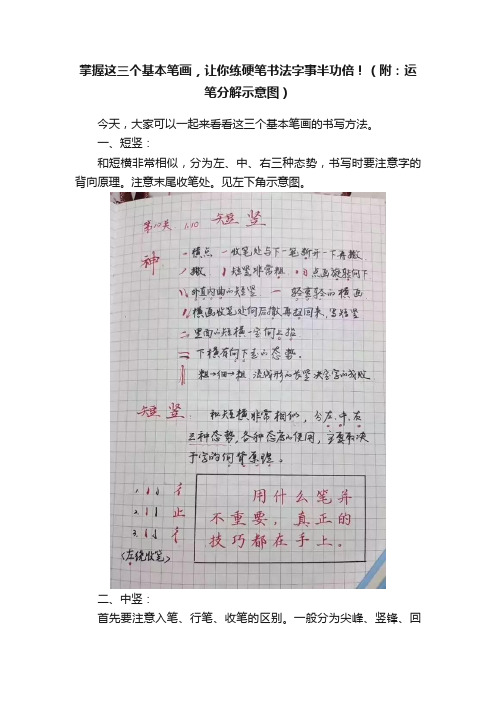 掌握这三个基本笔画，让你练硬笔书法字事半功倍！（附：运
笔分解示意图）
今天，大家可以一起来看看这三个基本笔画的书写方法。
一、短竖：
和短横非常相似，分为左、中、右三种态势，书写时要注意字的
背向原理。注意末尾收笔处。见左下角示意图。
第10关 1.10 短竖
神
横点 收笔处与下一笔断开一下再撇
撇 短竖非常粗 点画旋转向下
外直内曲的短竖 一 轻变轻的横画
横画收笔处向后撤再拉回来，写短竖
里面的短横一定向上抬
下横有向下走的态势。
粗→细→粗 流线形的长竖决定字的成败
短竖 和短横非常相似，分左、中、右
三种态势，各种态度的使用，主要取决
于字的向背原理。
1. 彳
2. 止
3. 彳
<左绕收笔>
用什么笔并
不重要，真正的
技巧都在手上。
二、中竖：
首先要注意入笔、行笔、收笔的区别。一般分为尖峰、竖锋、回